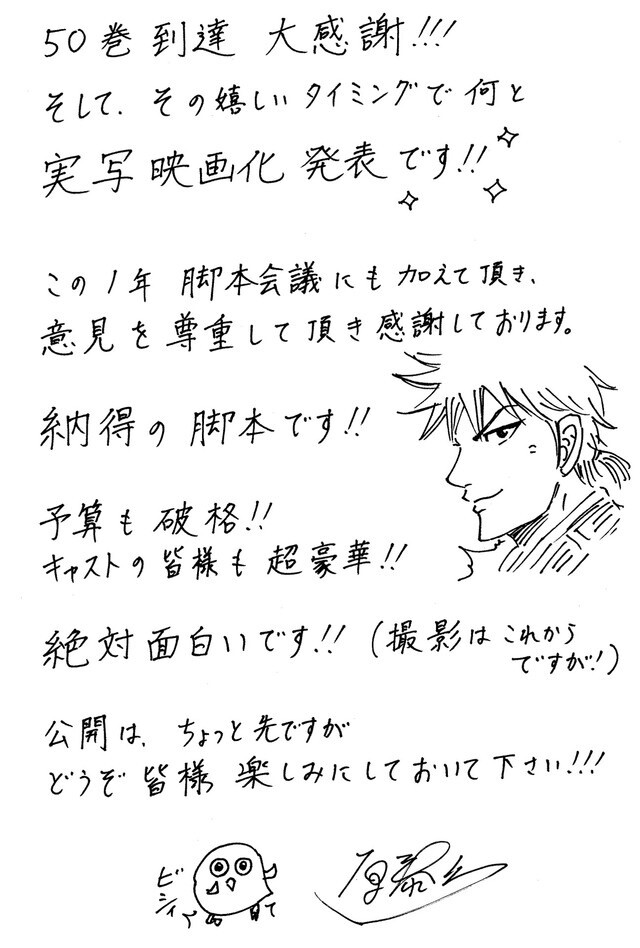 50巻 到達 大感謝!!!
そして、その嬉しいタイミングで 何と
実写映画化 発表です!!
この1年 脚本会議にも加えて頂き、
意見を尊重して頂き感謝しております。
納得の脚本です!!
予算も破格!!
キャストの皆様も超豪華!!
絶対面白いです!! (撮影は これから
ですが!)
公開は、ちょっと先ですが
どうぞ皆様 楽しみにしておいて下さい!!!
ビシィ
原泰久